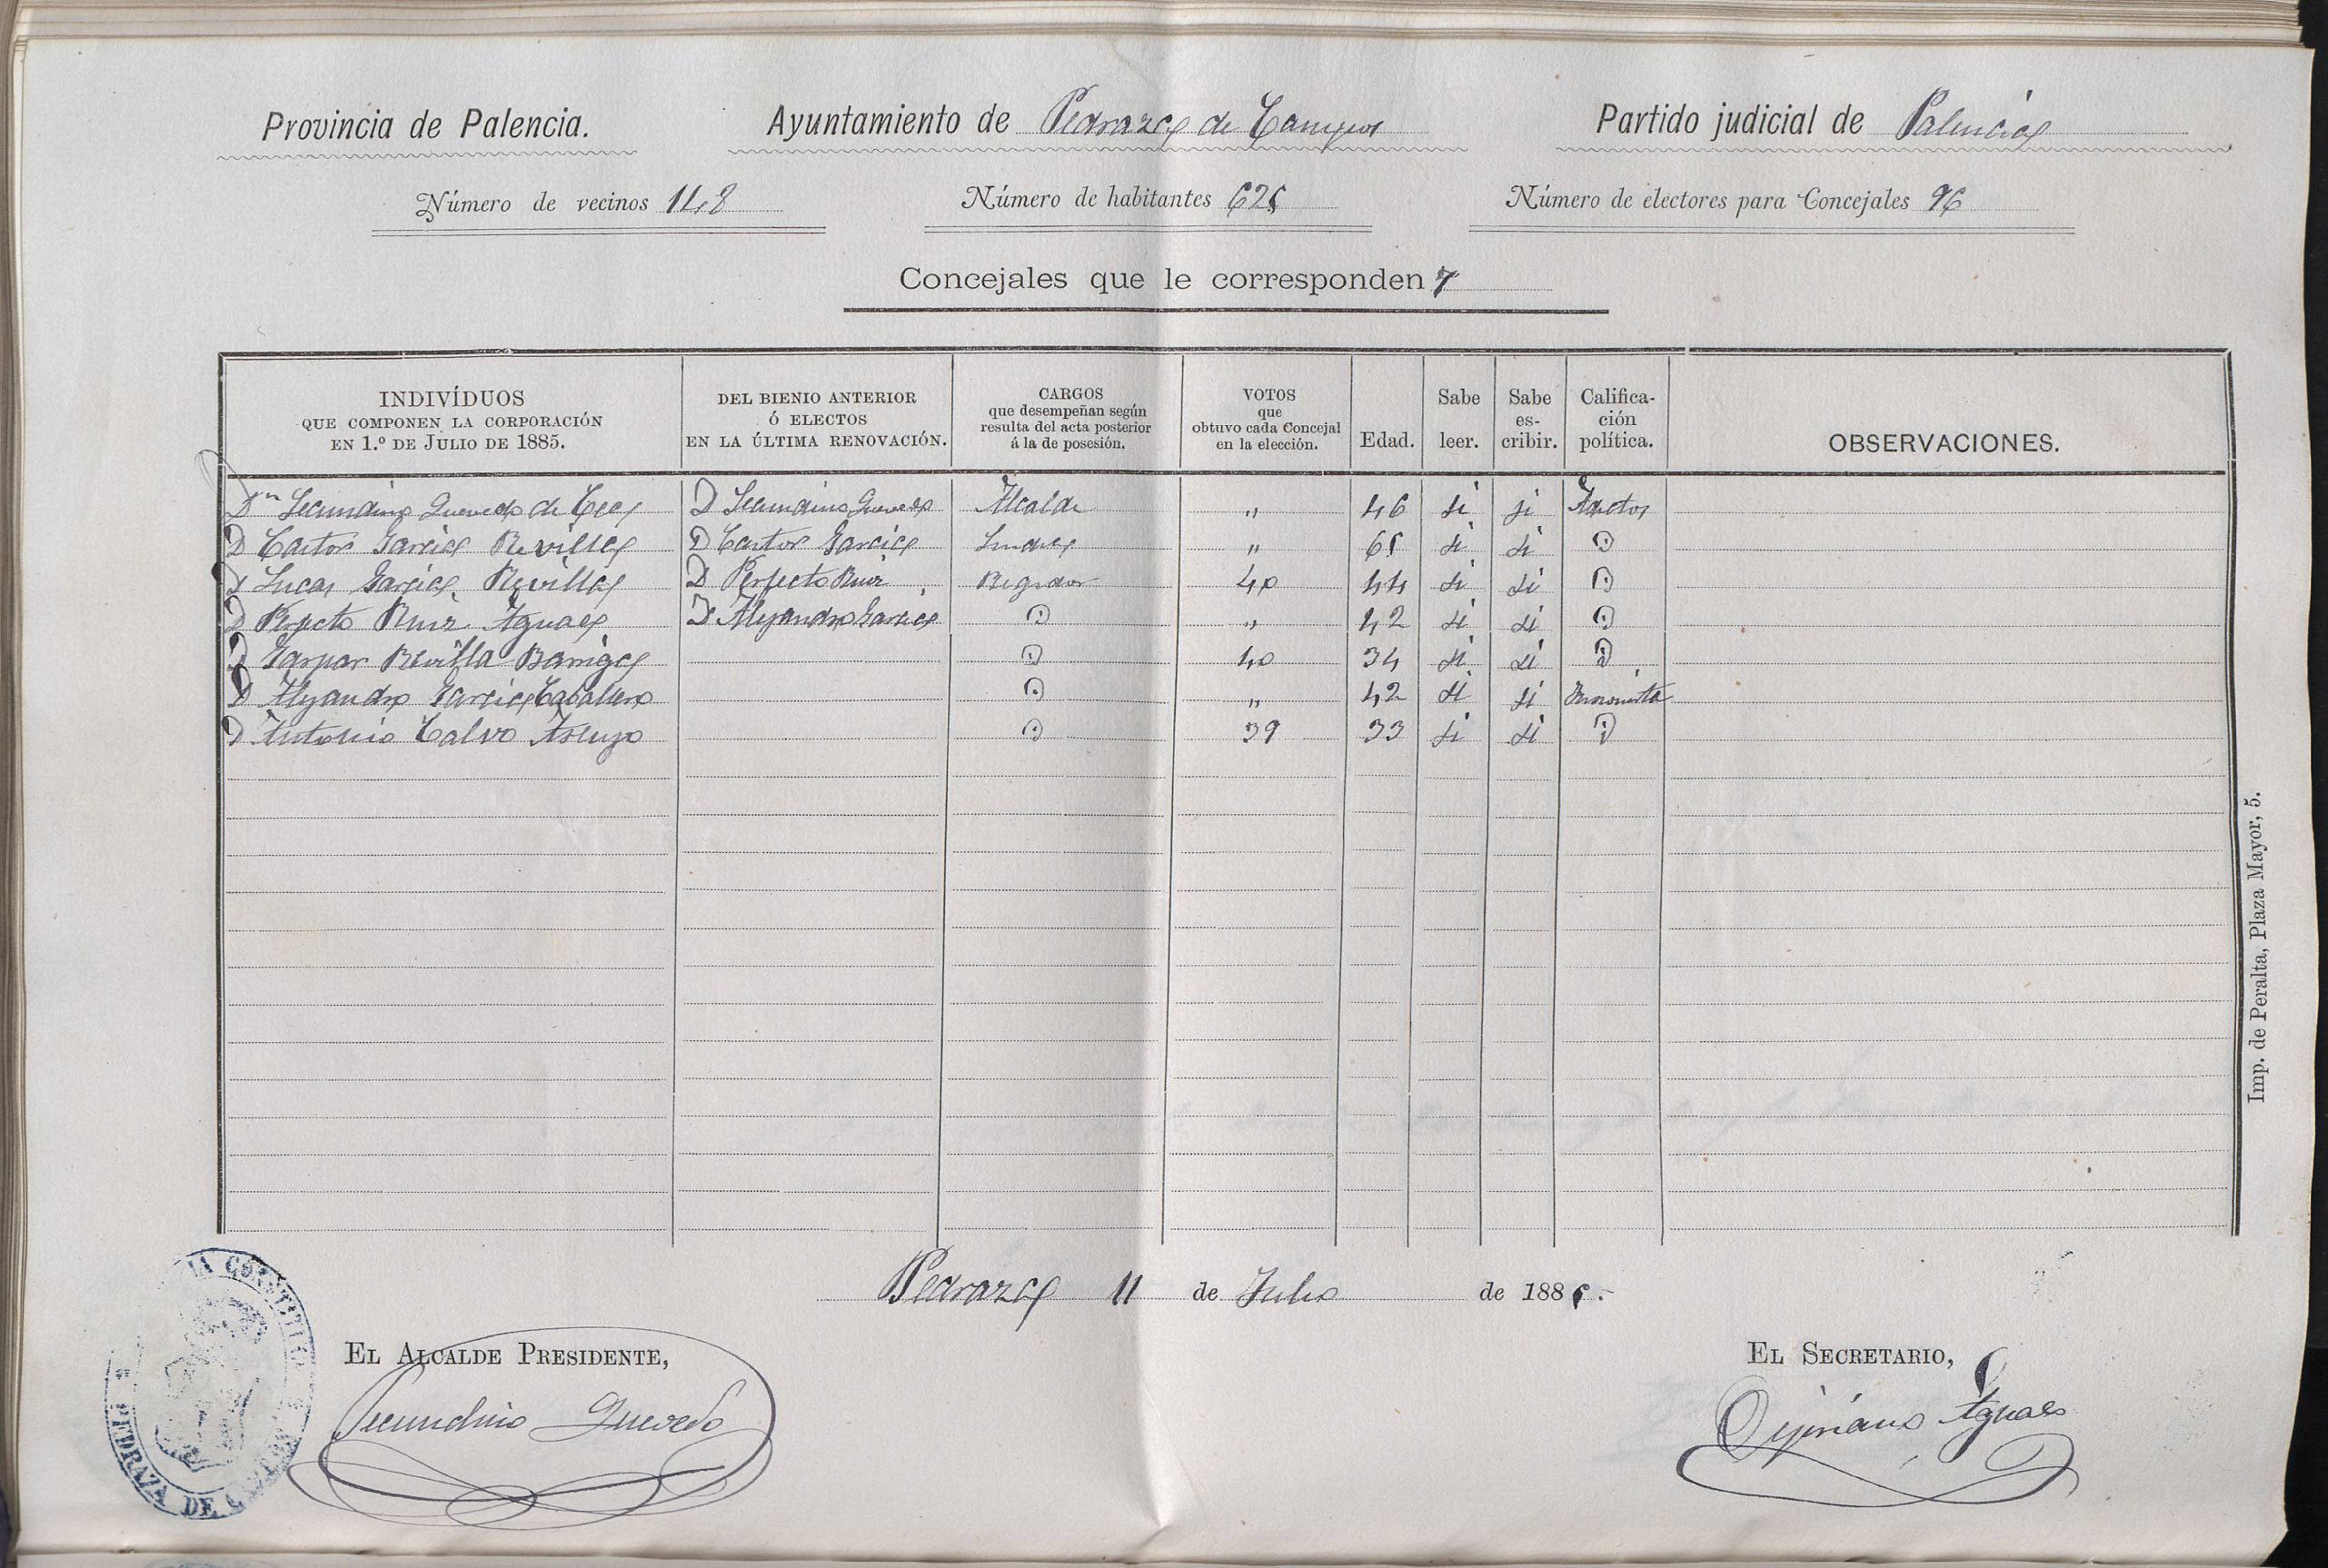 Provincia de Palencia. Ayuntamiento de Pedraza de Campos Partido judicial de Palencia
Número de vecinos 148 Número de habitantes 625 Número de electores para Concejales 96
Concejales que le corresponden 7
INDIVÍDUOS QUE COMPONEN LA CORPORACIÓN EN 1.º DE JULIO DE 1885. DEL BIENIO ANTERIOR Ó ELECTOS EN LA ÚLTIMA RENOVACIÓN. CARGOS que desempeñan según resulta del acta posterior á la de posesión. VOTOS que obtuvo cada Concejal en la elección. Edad. Sabe leer. Sabe escribir. Calificación política. OBSERVACIONES.
Dn Secundino Quevedo de D Secundino Quevedo Alcalde " 46 si si
D Castor Garcia Revilla D Castor Garcia Sindico " 65 si si D
D Lucas Garcia Revilla D Perfecto Ruiz Regidor 40 44 si si D
D Perfecto Ruiz Aguado D Alejandro Garcia D " 42 si si D
D Gaspar Revilla Barriga D 40 34 si si D
D Alejandro Garcia Caballero D " 42 si si
D Antonio Calvo D 39 33 si si D
Imp. de Peralta, Plaza Mayor, 5.
Pedraza 11 de Julio de 1885.
EL ALCALDE PRESIDENTE, EL SECRETARIO,
Secundino Quevedo Cipriano Aguado
PEDRAZA DE CAMPOS